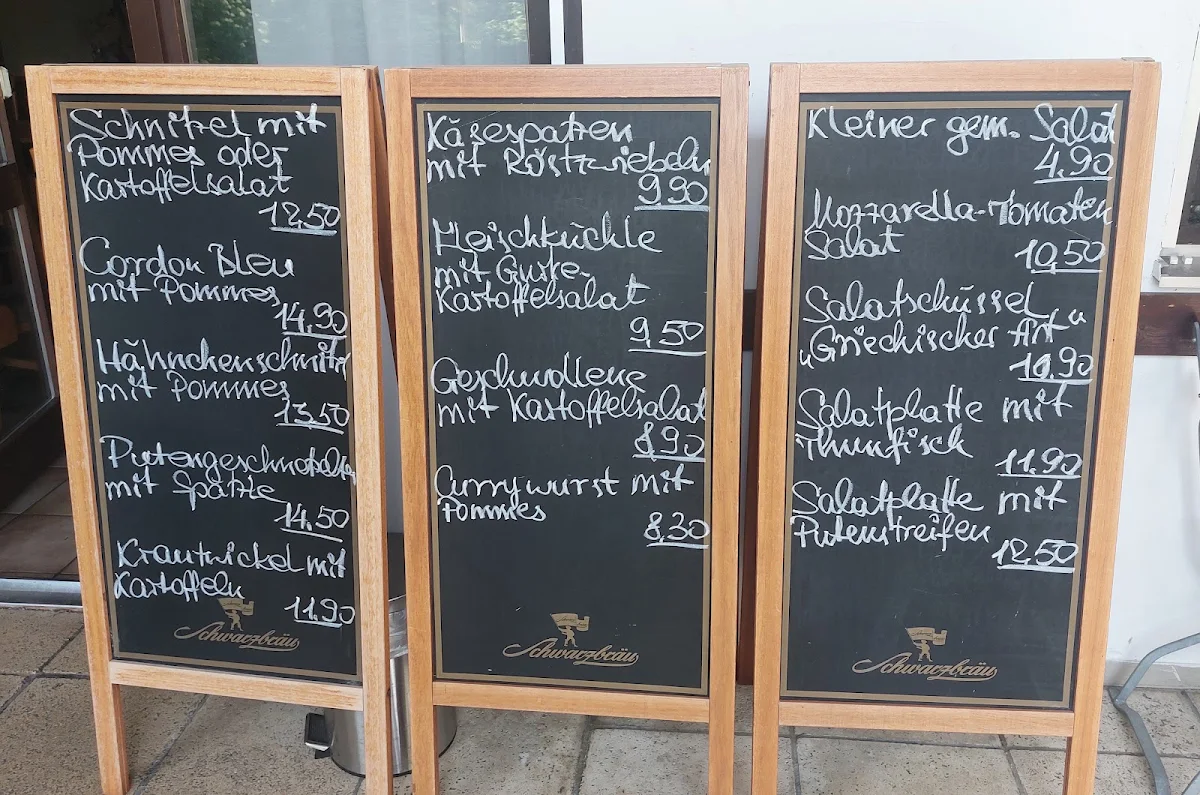 Schnitzel mit
Pommes oder
Kartoffelsalat
12,50
Cordon Bleu
mit Pommes
14,90
Hähnchenschnitzel
mit Pommes
13,50
Putengeschnetzeltes
mit Spätzle
14,50
Krautwickel mit
Kartoffeln
11,90
Schwarzbräu
Käsespatzen
mit Röstzwiebeln
9,90
Fleischküchle
mit Gurke-
Kartoffelsalat
9,50
Geschwollene
mit Kartoffelsalat
8,90
Currywurst mit
Pommes
8,30
Schwarzbräu
Kleiner gem. Salat
4,90
Mozzarella-Tomaten
Salat
10,50
Salatschüssel
„Griechischer Art“
10,90
Salatplatte mit
Thunfisch
11,90
Salatplatte mit
Putenstreifen
12,50
Schwarzbräu